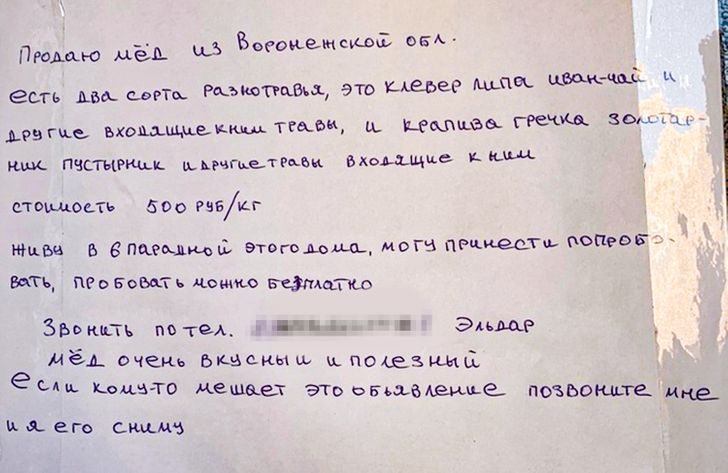 Продаю мёд из Воронежской обл.
есть два сорта разнотравья, это клевер липа иван-чай и
другие входящие к ним травы, и крапива гречка золотар-
ник пустырник и другие травы входящие к ним
стоимость 500 руб/кг
живу в 6 парадной этого дома, могу принести попробо-
вать, пробовать можно бесплатно
Звонить по тел. Эльдар
мёд очень вкусный и полезный
если кому-то мешает это обьявление позвоните мне
и я его сниму